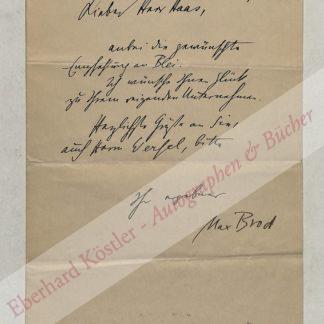 Lieber Herr Haas,
anbei die gewünschte
Empfehlung an Blei.
Ich wünsche Ihnen Glück
zu Ihrem eigenen Unternehmen.
Herzlichste Grüße an Sie,
auch Herrn Werfel, bitte
Ihr ergebener
Max Brod
Eberhard Köstler - Autographen & Bücher